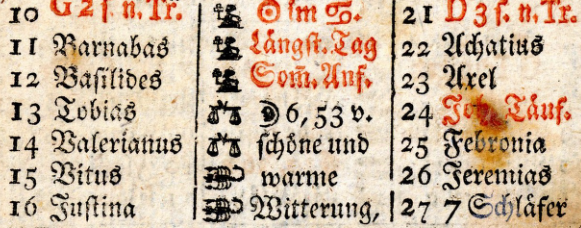 10 G 2 s. n. Tr. ☉ im ♋. 21 D 3 s. n. Tr.
11 Barnabas Längst. Tag 22 Achatius
12 Basilides Som̄. Anf. 23 Axel
13 Tobias ☽ 6, 53 v. 24 Joh. Täuf.
14 Valerianus schöne und 25 Febronia
15 Vitus warme 26 Jeremias
16 Justina Witterung, 27 7 Schläfer